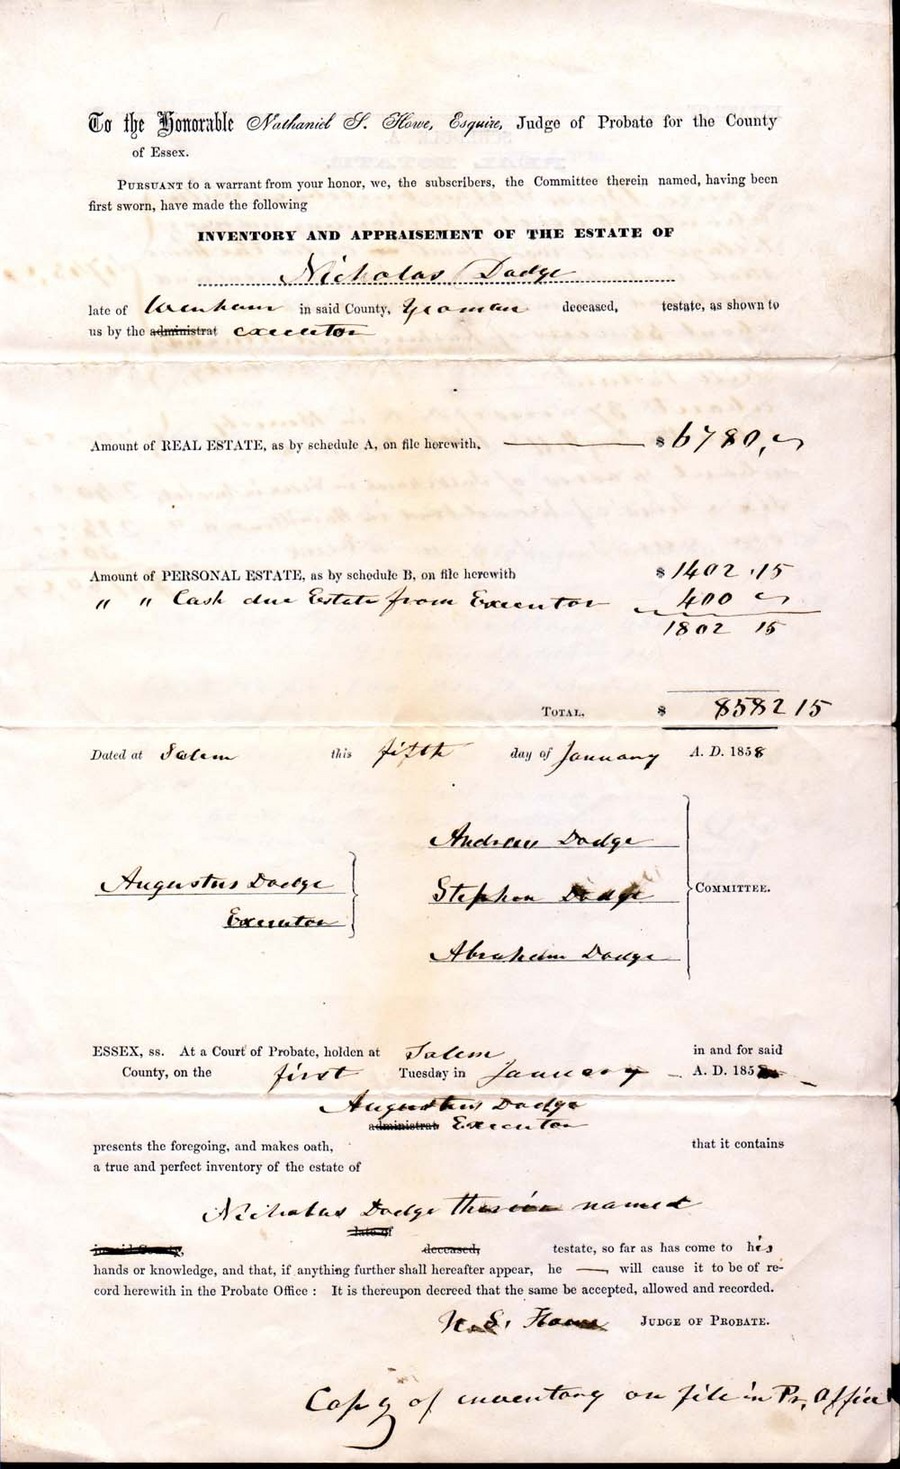 To the Honorable Nathaniel S. Howe, Esquire, Judge of Probate for the County
of Essex.
PURSUANT to a warrant from your honor, we, the subscribers, the Committee therein named, having been
first sworn, have made the following
INVENTORY AND APPRAISEMENT OF THE ESTATE OF
Nicholas Dodge
late of Wenham in said County, Yeoman deceased, testate, as shown to
us by the administrat executor
Amount of REAL ESTATE, as by schedule A, on file herewith, $6780,
Amount of PERSONAL ESTATE, as by schedule B, on file herewith $1402.15
" " Cash due Estate from Executor 400
1802 15
TOTAL, $ 8582 15
Dated at Salem this fifth day of January A. D. 1858
Andrew Dodge
Augustus Dodge
Stephen Dodge COMMITTEE.
Executor
Abraham Dodge
ESSEX, ss. At a Court of Probate, holden at Salem in and for said
County, on the first Tuesday in January A. D. 1858
Augustus Dodge
administrat Executor
presents the foregoing, and makes oath, that it contains
a true and perfect inventory of the estate of
Nicholas Dodge therein named
late of
in said County, deceased, testate, so far as has come to his
hands or knowledge, and that, if anything further shall hereafter appear, he will cause it to be of re-
cord herewith in the Probate Office : It is thereupon decreed that the same be accepted, allowed and recorded.
N. S. Howe JUDGE OF PROBATE.
Copy of inventory on file in Pr. Office